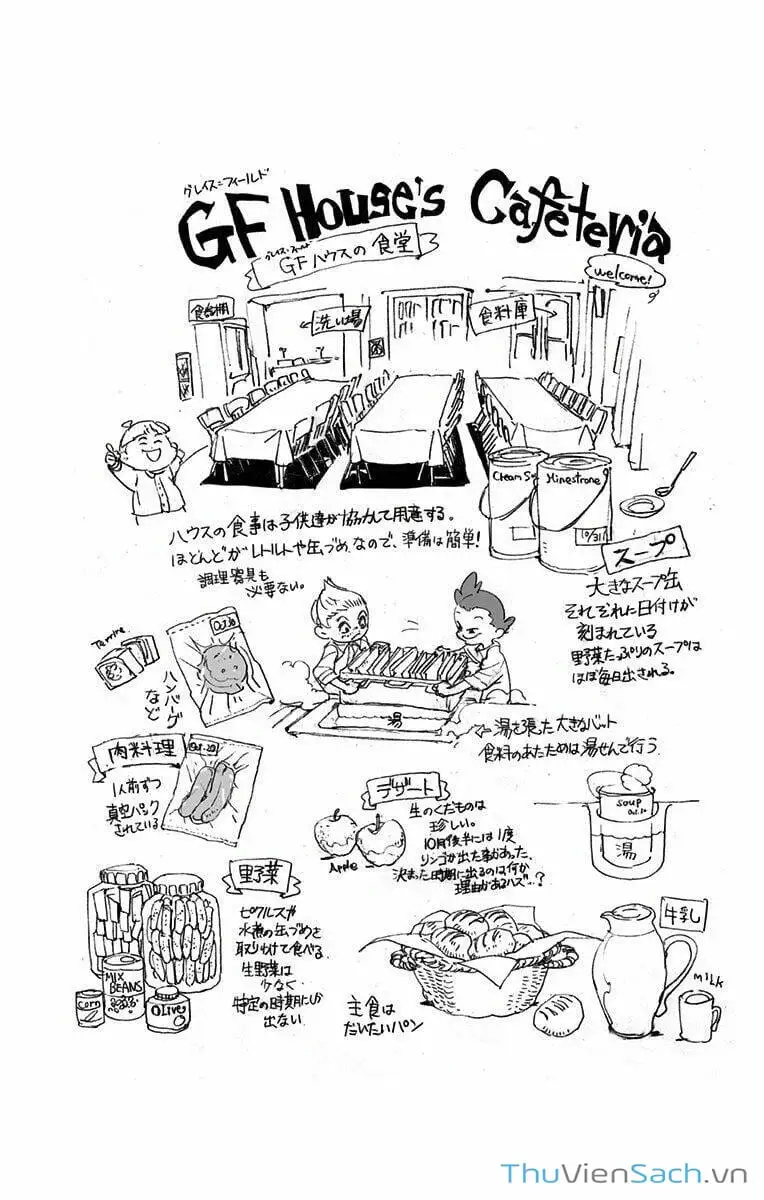 グレイス=フィールド
GF House's Cafeteria
グレイス=フィールド
GFハウスの食堂
welcome!
食器棚
←洗い場
食料庫→
Cream S
Minestrone
10/31
スープ
ハウスの食事は子供達が協力して用意する。
ほとんどがレトルトや缶づめなので、準備は簡単!
調理器具も
必要ない。
大きなスープ缶
それぞれに日付けが
刻まれている
野菜たっぷりのスープは
ほぼ毎日出される。
Terrine
Oct.20
ハンバーグ
など
湯
湯を張った大きなバット
食料のあたためは湯せんで行う
肉料理
Oct.20
1人前ずつ
真空パック
されている
デザート
生のくだものは
珍しい。
10月後半には1度
リンゴが出た事があった、
決まった時期に出るのは何か
理由があるハズ…?
Apple
soup
Oct.20
湯
野菜
ピクルスや
水煮の缶づめを
取りわけて食べる
生野菜は
少なく
特定の時期にしか
出ない
MIX
BEANS
Corn
Olive
主食は
だいたいパン
牛乳
MILK
ThuVienSach.vn